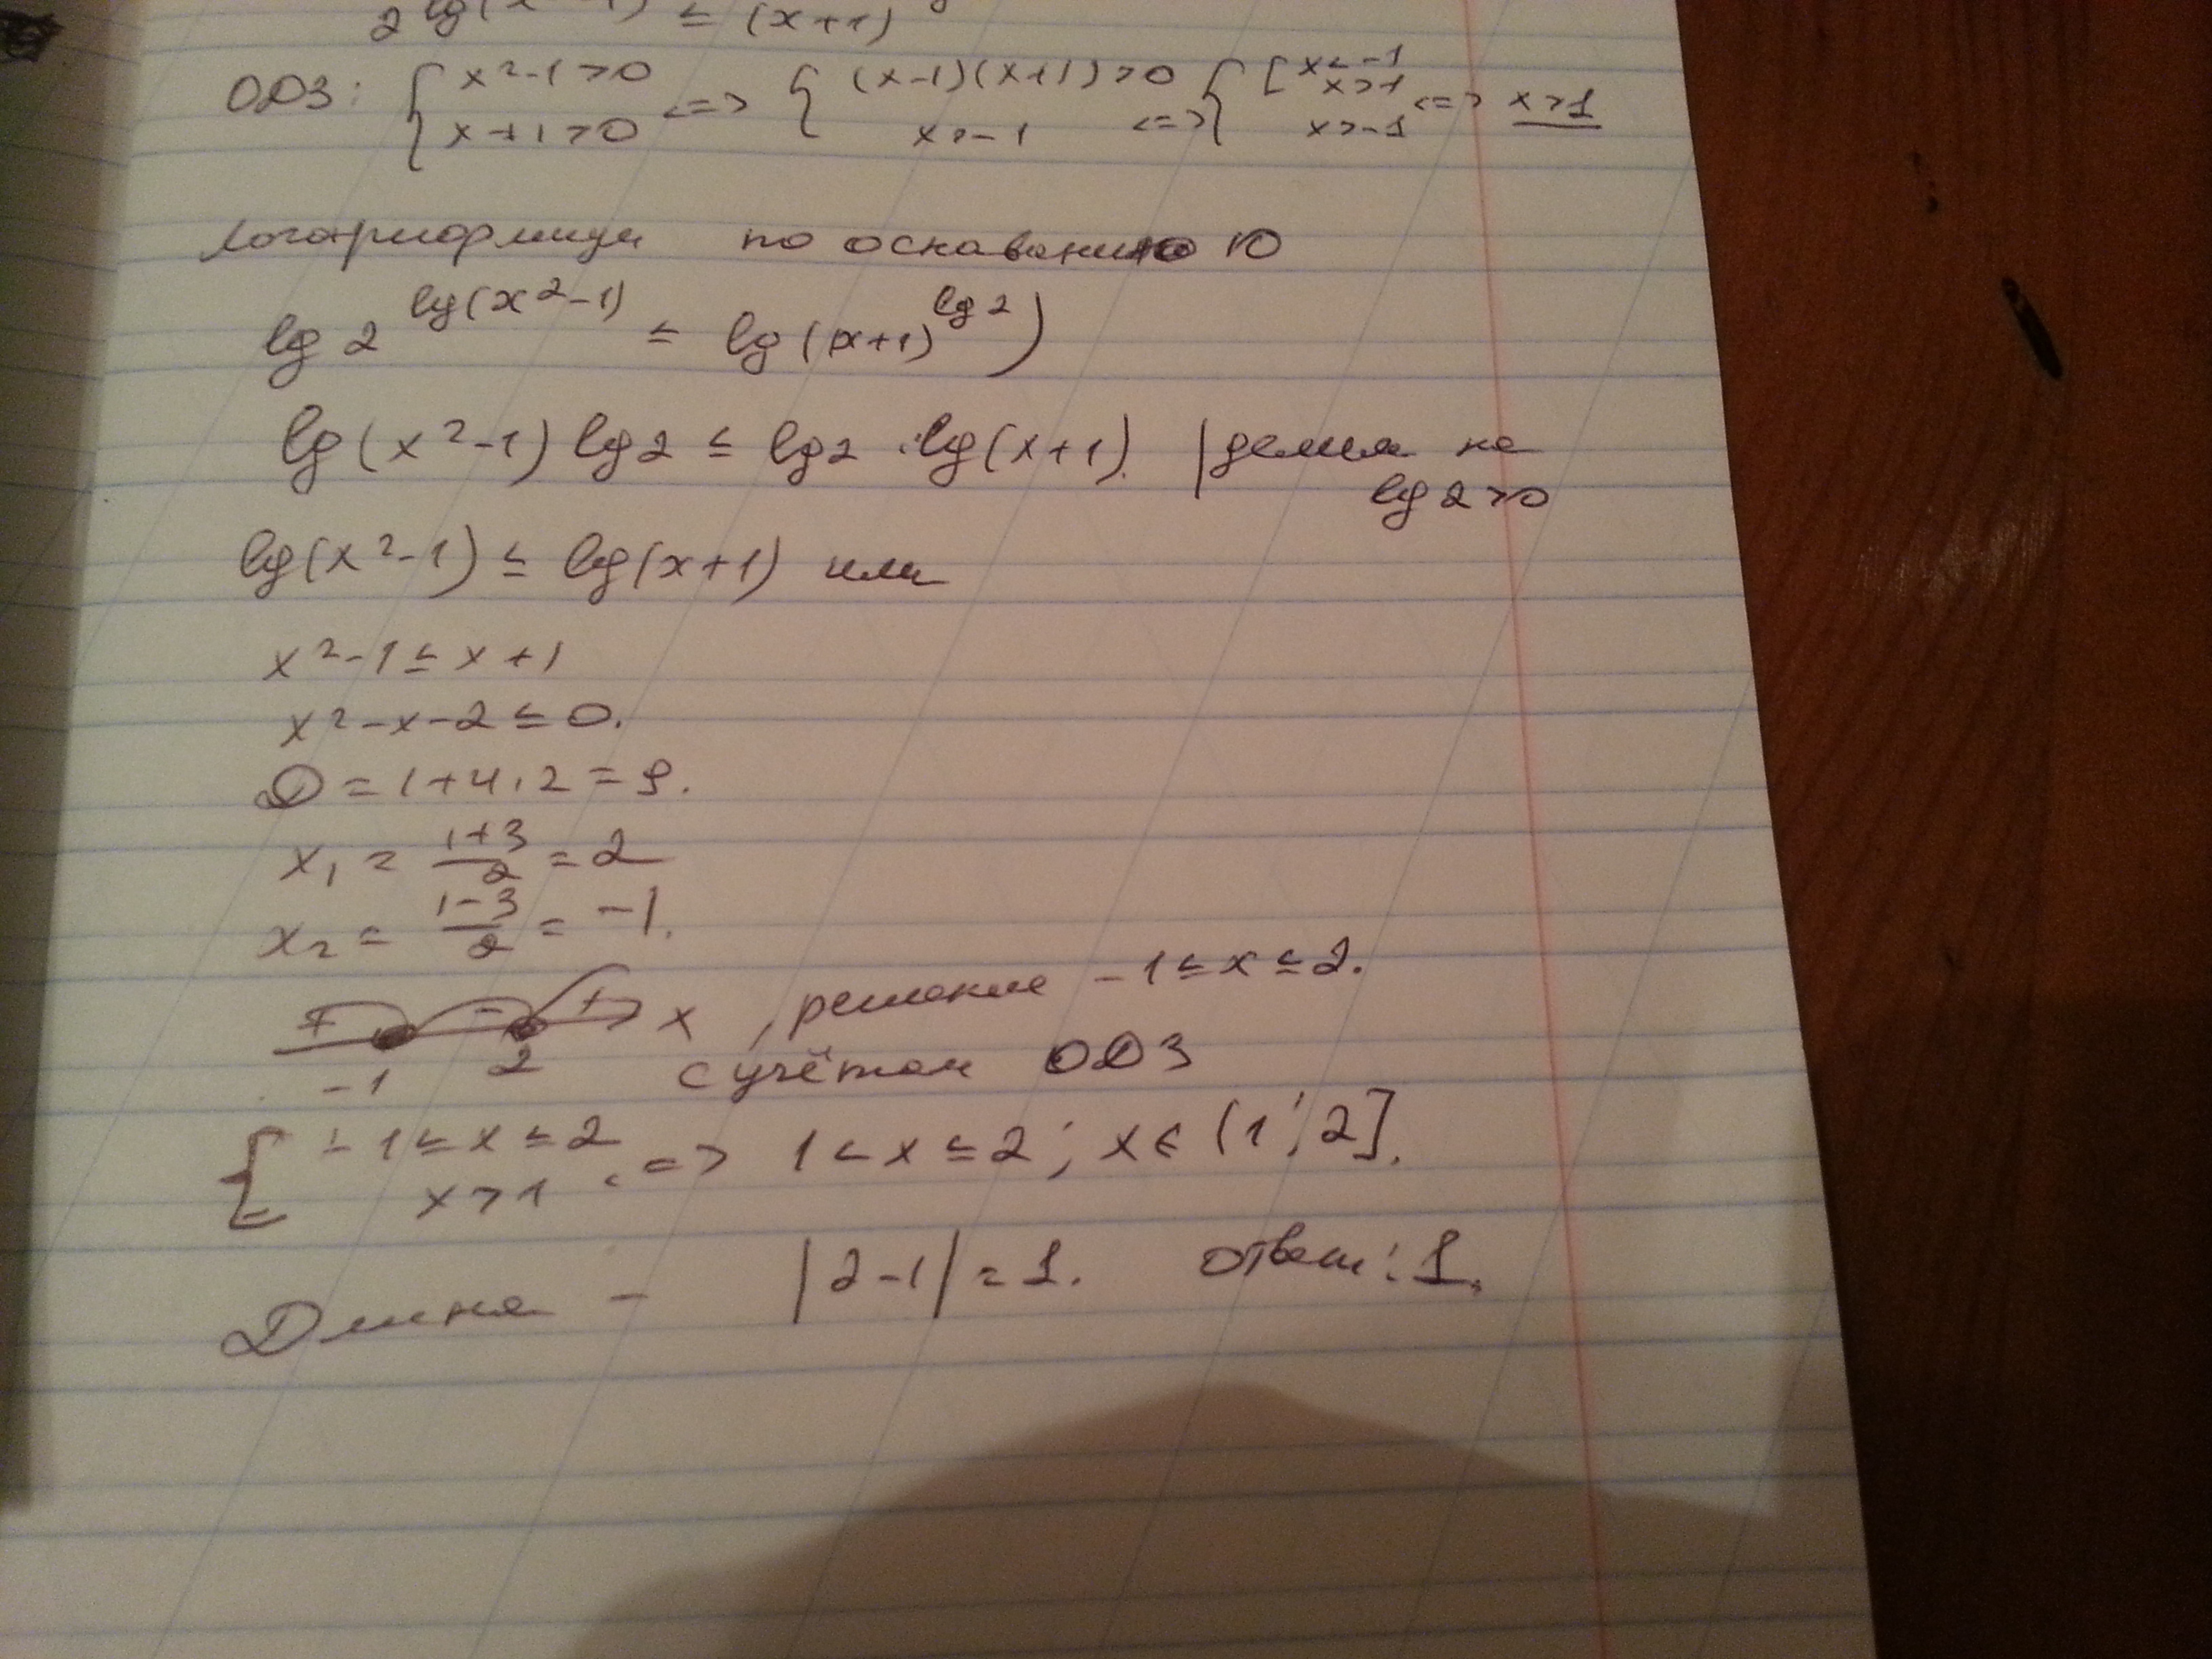 2^{lg(x^2-1)} ≤ (x+1)
ОДЗ: { x^2-1>0 ; x+1>0 <=> { (x-1)(x+1)>0 ; x>-1 <=> { [ x<-1 ; x>1 ; x>-1 <=> x>1
логарифмируем по основанию 10
lg 2^{lg(x^2-1)} ≤ lg(x+1)^{lg 2})
lg(x^2-1) lg2 ≤ lg2 · lg(x+1). | делим на
lg 2 >0
lg(x^2-1) ≤ lg(x+1) или
x^2-1 ≤ x+1
x^2-x-2 ≤ 0.
D = 1+4·2 = 9.
x_1 = \frac{1+3}{2} = 2
x_2 = \frac{1-3}{2} = -1.
+ - + x , решение -1 ≤ x ≤ 2.
-1 2 с учётом ОДЗ
{ -1 ≤ x ≤ 2 ; x>1 <=> 1 < x ≤ 2; x ∈ (1; 2].
Длина - |2-1| = 1. ответ: 1.